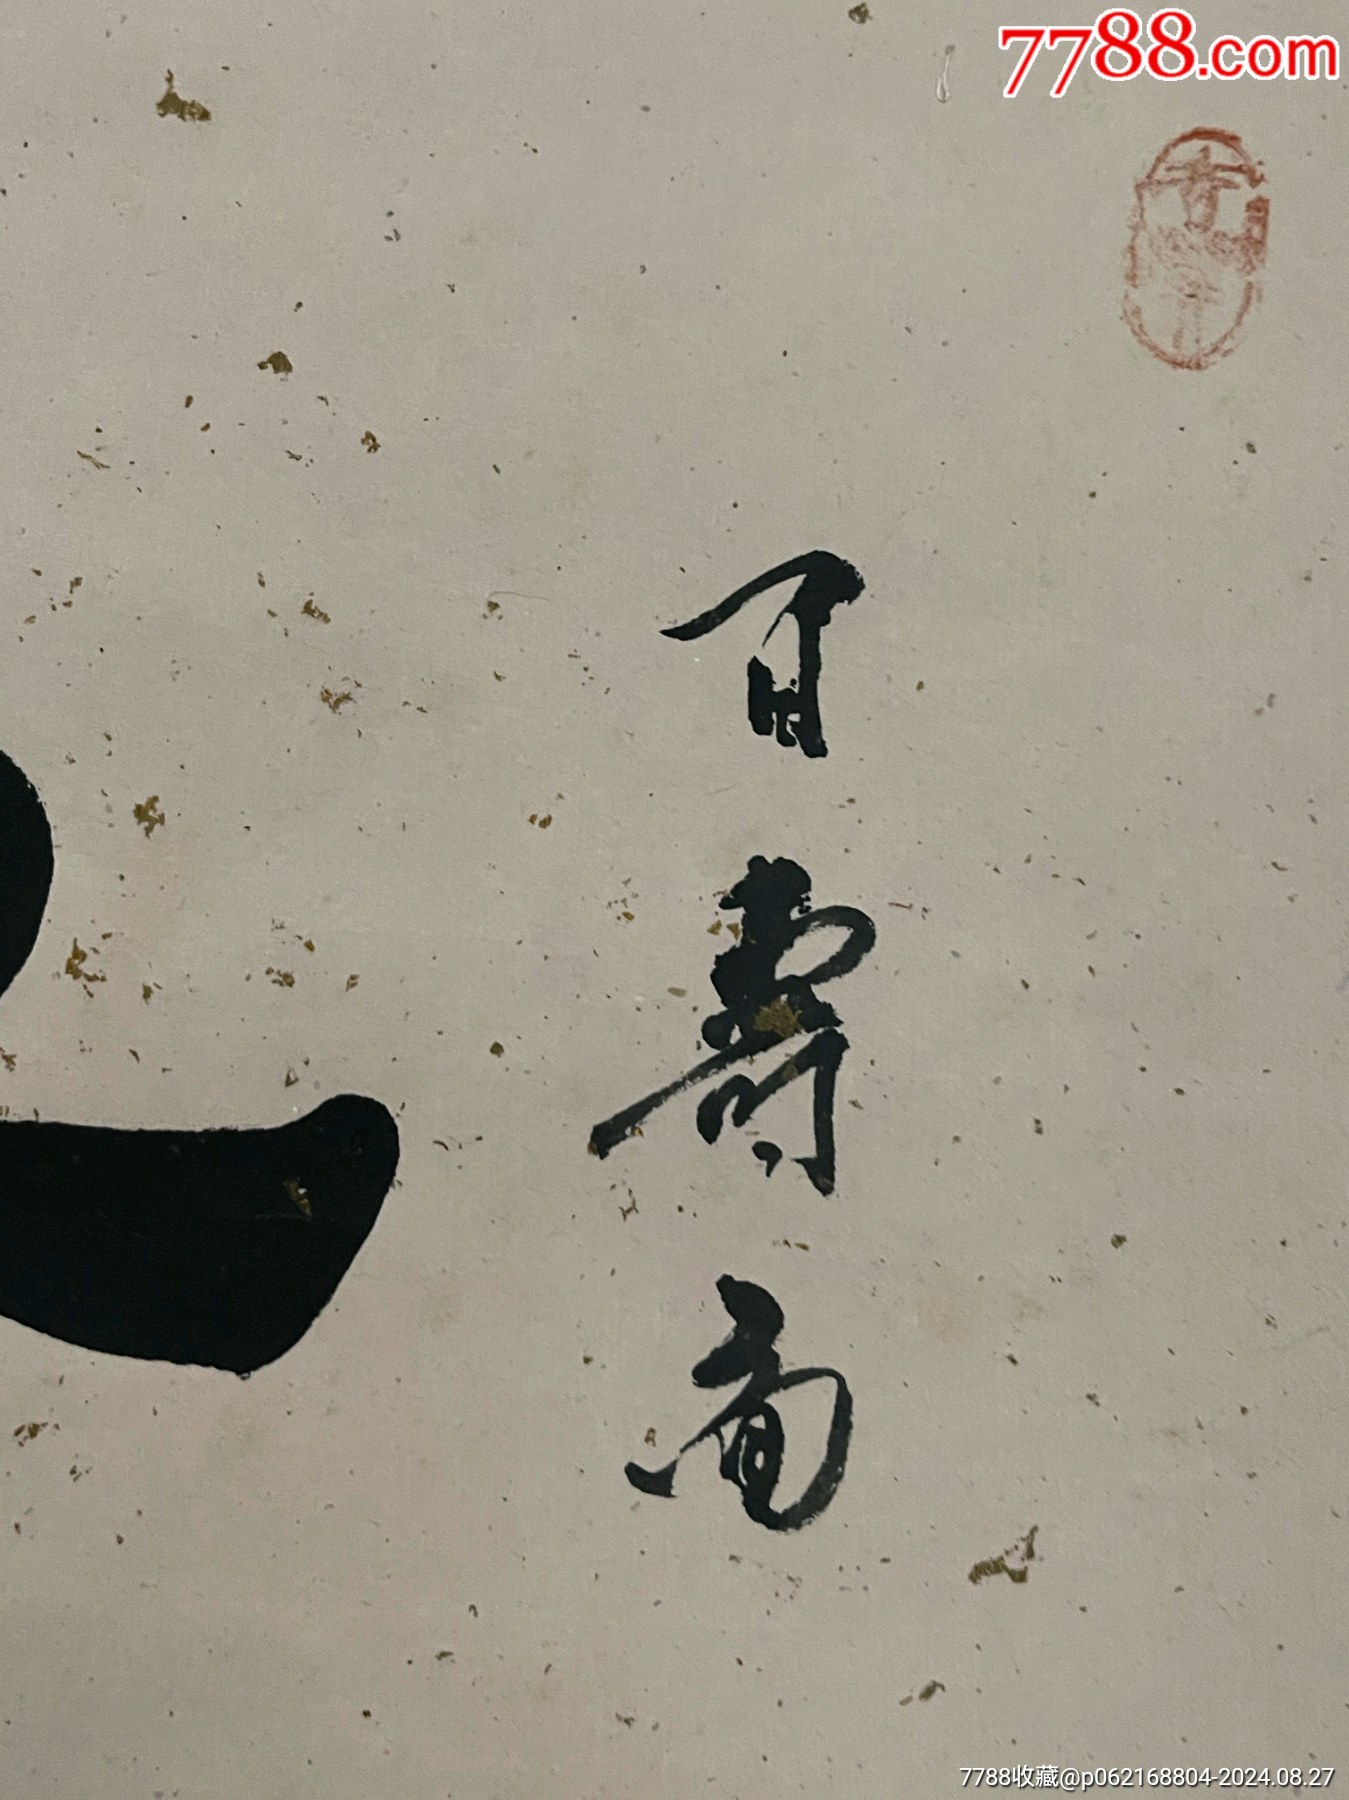 7788.com
百壽
7788收藏@p062168804-2024.08.27